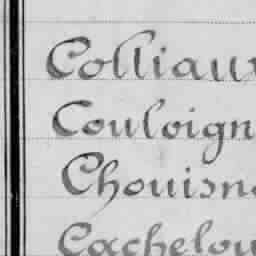 Colliau
Couloign
Chouisn
Cachelou